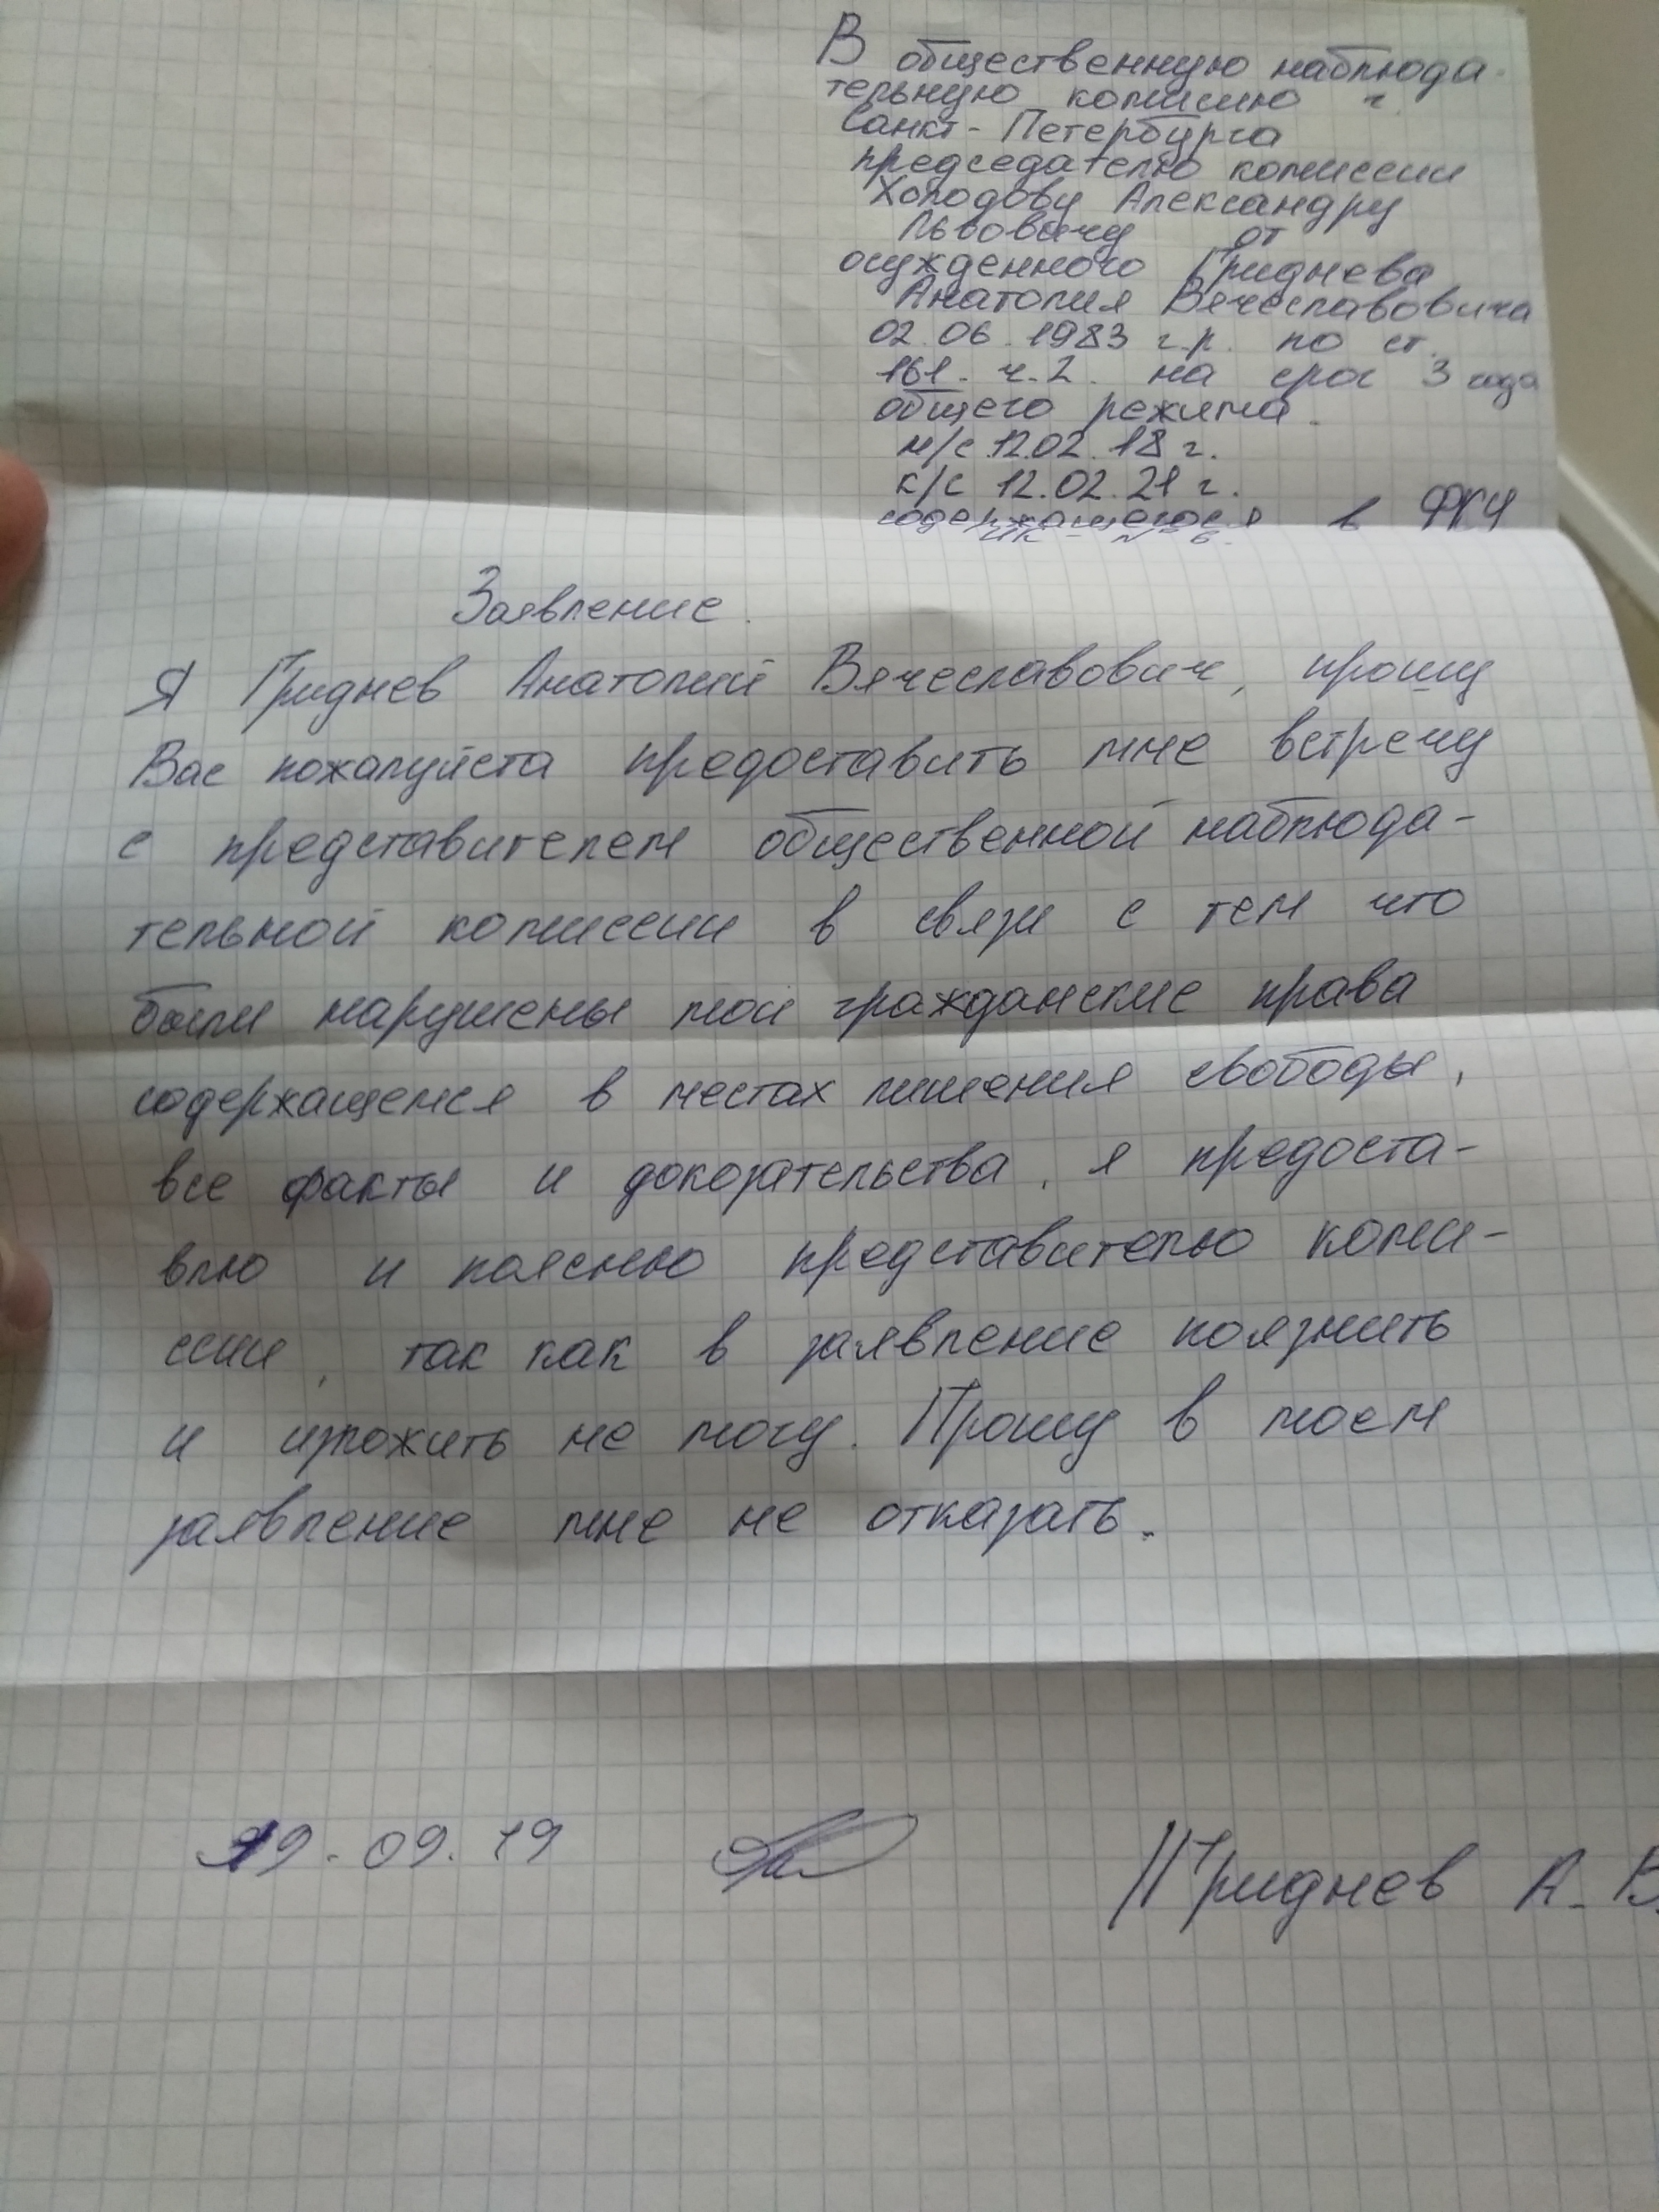 В общественную наблюда-
тельную комисию г.
Санкт-Петербурга
председателю комиссии
Холодову Александру
Львовичу от
осужденного Гриднева
Анатолия Вячеславовича
02.06.1983 г.р. по ст.
161. ч.2. на срок 3 года
общего режима.
н/с 12.02.18 г.
к/с 12.02.21 г.
содержащегося в ФКУ
ИК-№6.
Заявление.
Я Гриднев Анатолий Вячеславович, прошу
Вас пожалуйста предоставить мне встречу
с представителем общественной наблюда-
тельной комиссии в связи с тем что
были нарушены мои гражданские права
содержащемся в местах лишения свободы,
все факты и докозательства, я предоста-
влю и поясню представителю коми-
ссии, так как в заявление поязнить
и изложить не могу. Прошу в моем
заявление мне не отказать.
19.09.19
Гриднев А.В.